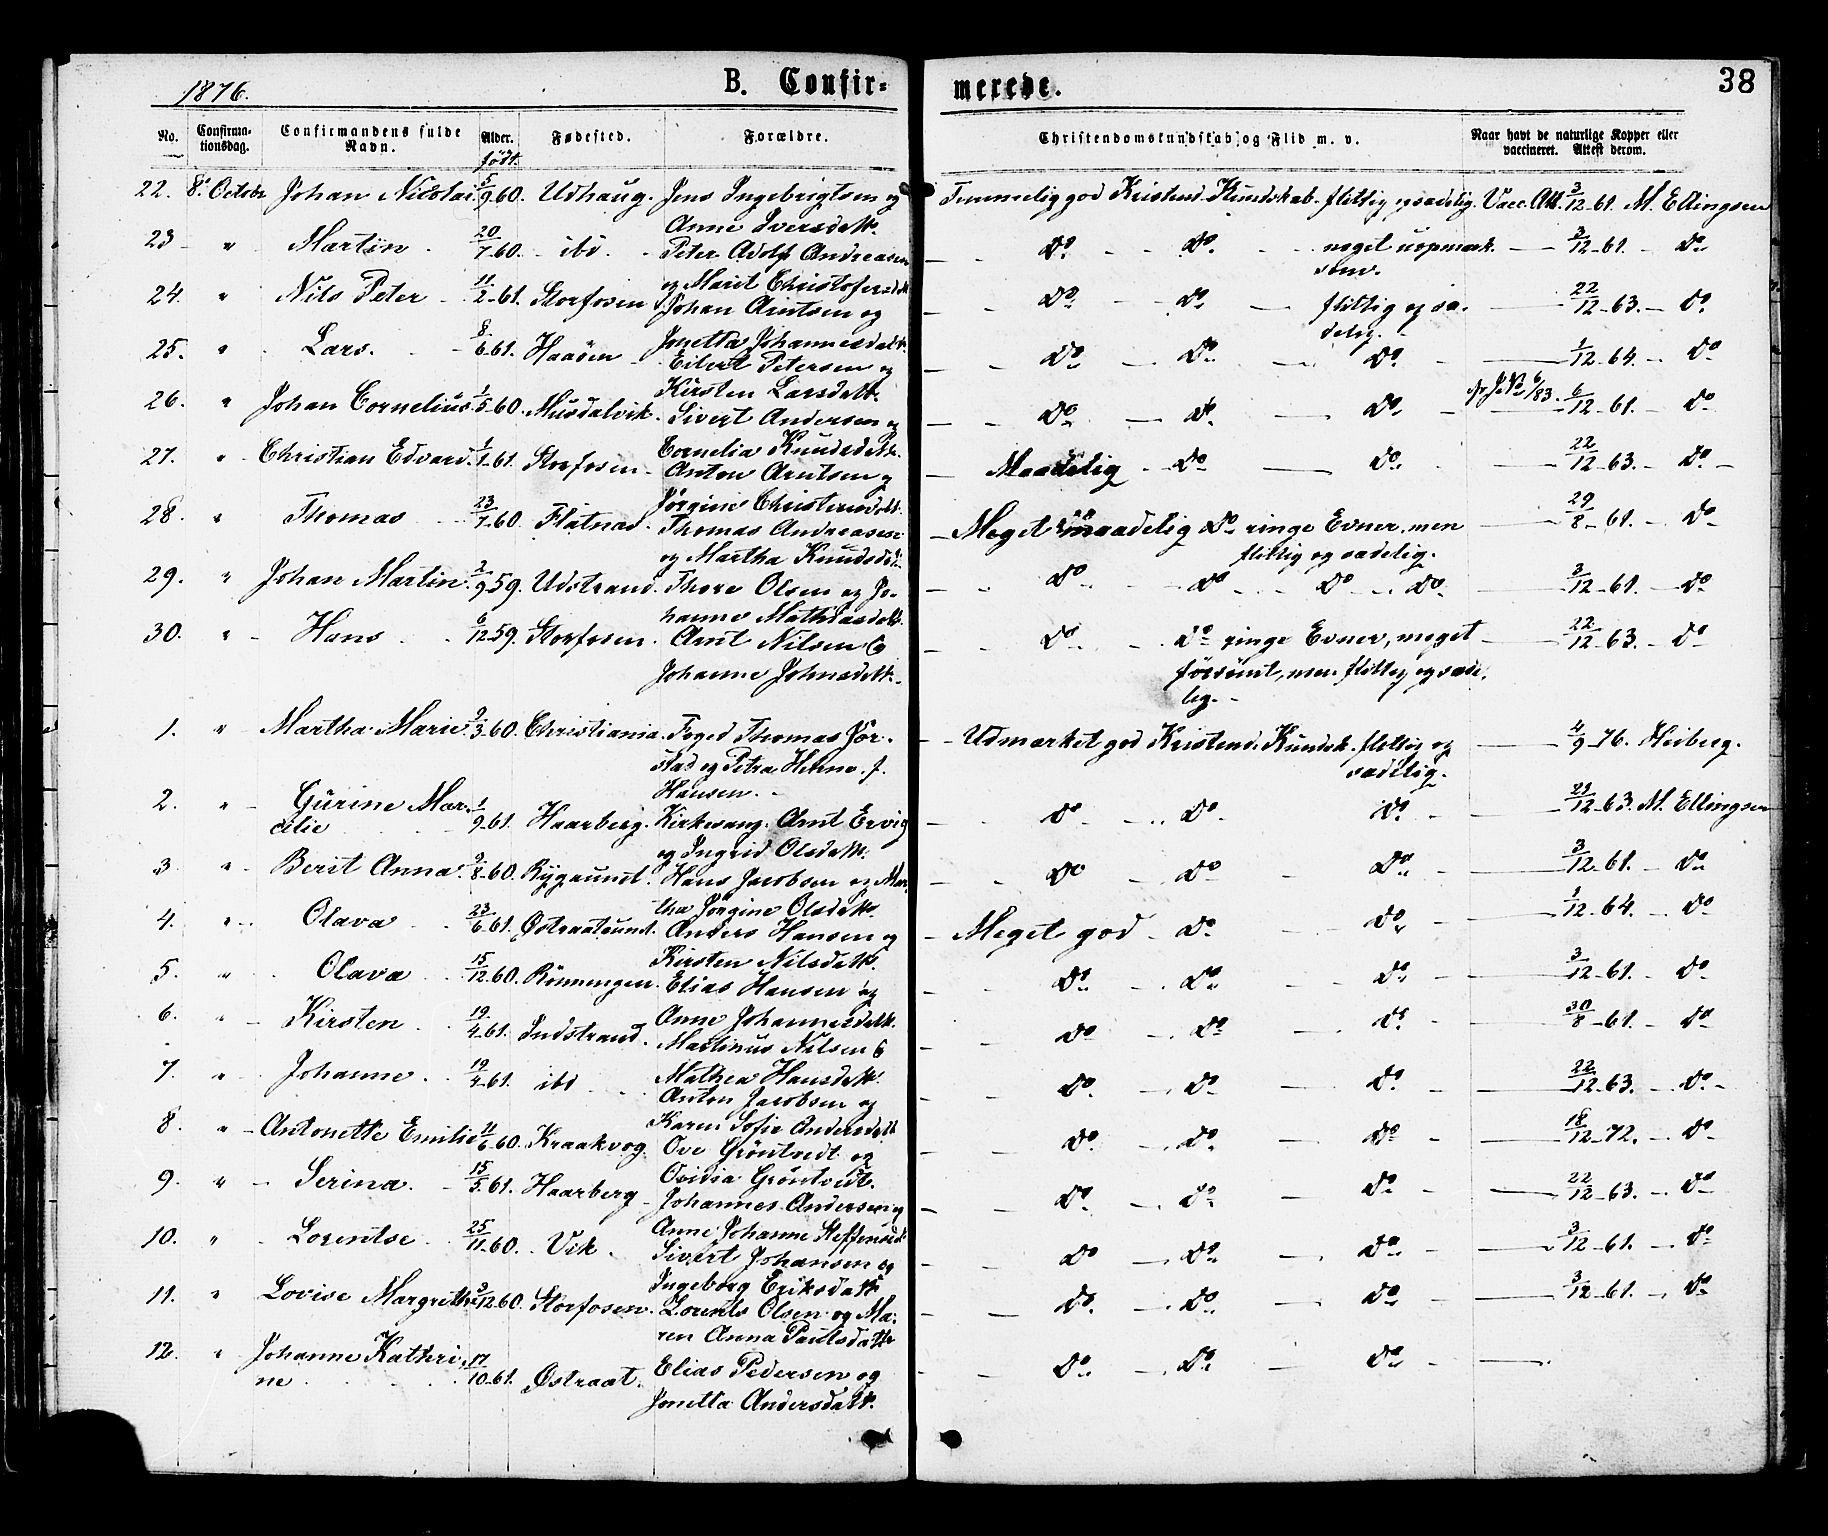 1876.
B. Confir-
merede.
38
No.
Confirma-
tionsdag.
Confirmandens fulde
Navn.
Alder.
födt.
Fødested.
Forældre.
Christendomskundskab og Flid m. v.
Naar havt de naturlige Kopper eller
vaccineret. Attest derom.
22. 8. Octobr Johan Nicolai 5/9.60. Udhaug. Jens Ingebrigtsen og Temmelig god Kristend. Kundskab. flittig og sædelig. Vacc. Att. 3/12-61. M. Ellingsen
Anne Iversdatt.
23 " Martin 20/7.60. ibd. Peter Adolf Andreasen Do Do noget uopmærk- 3/12-61. Do
som.
og Marit Christofersdatt
24. " Nils Peter 11/2-61. Storfosen Johan Arntsen og Do Do flittig og sæ- 22/12-63. Do
delig.
Jonetta Johannesdatt.
25. " Lars. 8/6.61. Haaöen Eilert Petersen og Do Do Do 1/12-64. Do
Kirsten Larsdatt.
26. " Johan Cornelius. 1/5.60. Musdalvik. Sivert Andersen og Do Do Do 6/12-61. Do
Cornelia Knudsdatt.
27. " Christian Edvard. 1/1-61. Storfosen Anton Arntsen og Maadelig Do Do 22/12-63. Do
Jörgine Christensdatt.
28. " Thomas 23/7-60. Flatnas. Thomas Andreasen Meget maadelig Do ringe Evner, men 29/8-61. Do
flittig og sædelig.
og Martha Knudsdatt.
29. " Johan Martin. 2/9.59. Udstrand. Thore Olsen og Jo- Do Do Do Do 3/12-61. Do
hanna Mathiasdatt.
30. " Hans 6/12.59. Storfosen. Arnt Nilsen & Do Do ringe Evner, meget 22/12-63. Do
Johanne Johnsdatt. försömt, men flittig og sæde-
lig.
1. " Martha Marie 9/3.60. Christiania Foged Thomas Jör- Udmærket god Kristend. Kundsk. flittig og 4/9-76. Heiberg.
stad og Petra Hanna f. sædelig.
Hansen.
2. " Gurine Mar- 1/9-61. Haarberg. Kirkesang. Arnt Ervig Do Do Do 21/12-63. M. Ellingsen
celie
og Ingrid Olsdatt.
3 " Berit Anna 9/8-60. Rygaunst. Hans Jacobsen og Mar- Do Do Do 3/12-61. Do
tha Jörgine Olsdatt.
4. " Olava 23/6.61. Østraatsund. Anders Hansen og Meget god Do Do 1/12-64. Do
Kirsten Nilsdatt.
5. " Olava 15/12.60. Rönningen. Elias Hansen og Do Do Do 3/12-61. Do
Anne Johannesdatt.
6. " Kirsten 19/4.61. Indstrand. Martinus Nilsen & Do Do Do 30/8-61. Do
Mathea Hansdatt.
7. " Johanne. 19/4.61. ibd Anton Jacobsen og Do Do Do 22/12-63. Do
Karen Sofie Andersdatt
8. " Antonette Emilie 11/6.60. Kraakvog. Ove Gröntvedt og Do Do Do 18/12-72. Do
Ovidia Gröntvedt.
9. " Serina. 15/5.61. Haarberg Johannes Andersen og Do Do Do 22/12-63. Do
Anne Johanne Steffensdatt
10. " Lorentse 25/11-60. Vik. Sivert Johansen og Do Do Do 3/12-61. Do
Ingeborg Eriksdatt
11. " Lovise Margrethe 3/12.60. Storfosen. Lorents Olsen og Ma- Do Do Do 3/12-61. Do
ren Anna Paulsdatter
12. " Johanne Kathri- 17/10-61. Østraat. Elias Pedersen og Do Do Do
ne
Jonetta Andersdatt.